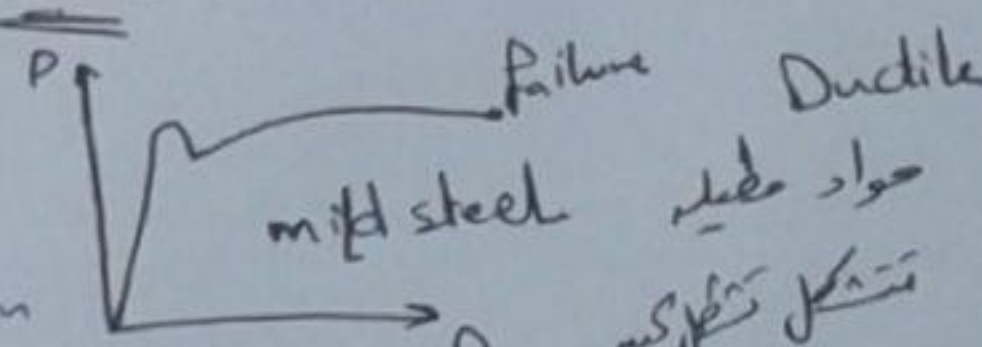 P
failure
Ductile
mild steel
مواد مطيله
n
تتشكل